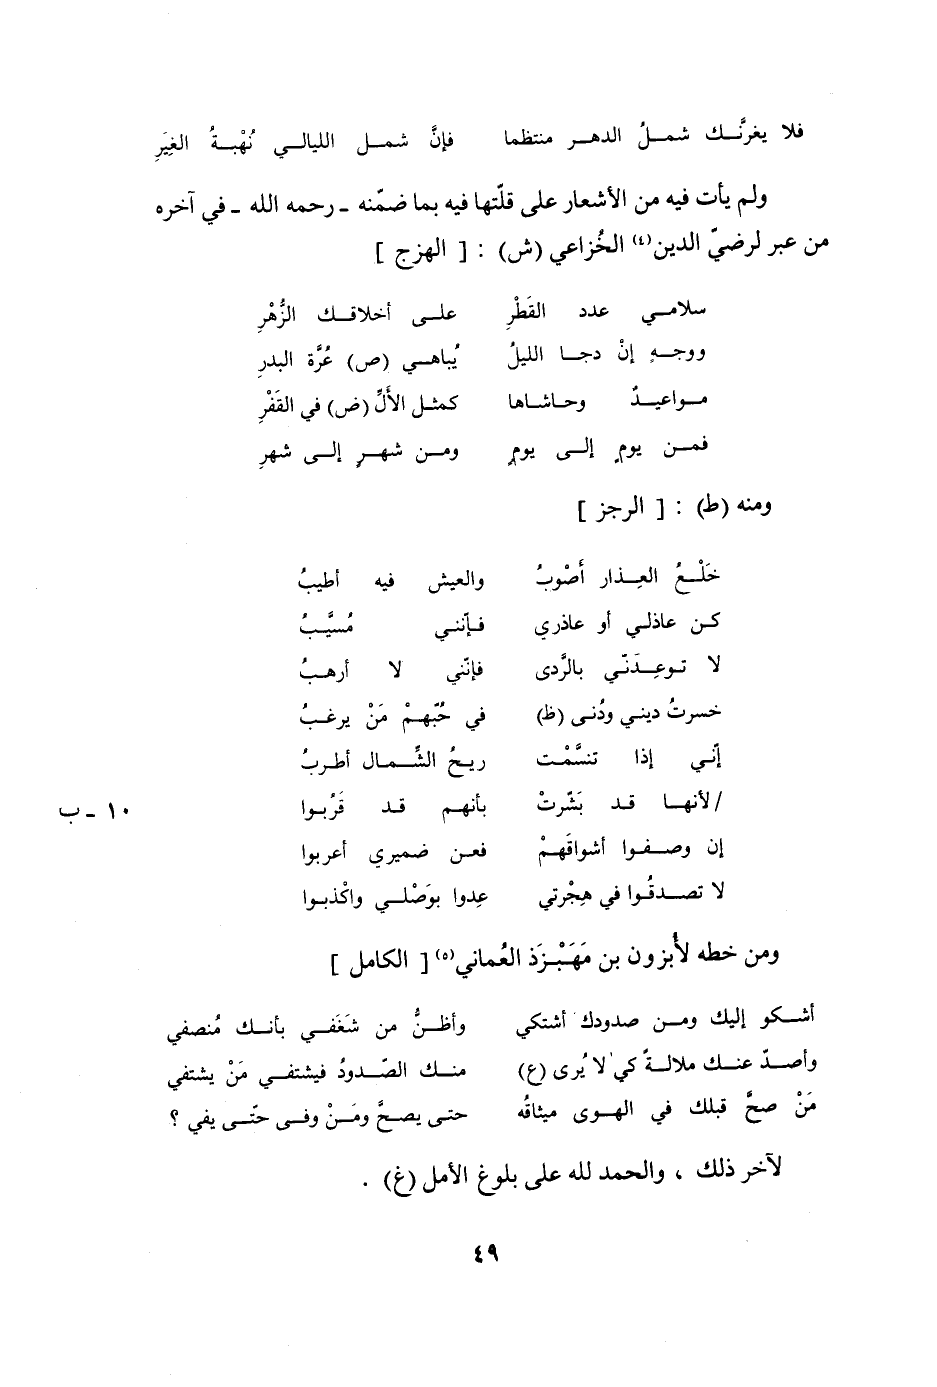 فلا يغرنَّـك شمـلُ الدهـر منتظما فإنَّ شمـل الليالـي نُهْبـةُ الغِيَرِ
ولم يأت فيه من الأشعار على قلّتها فيه بما ضمّنه ـ رحمه الله ـ في آخره
من عبر لرضيّ الدين(٤) الخُزاعي (ش) : [ الهزج ]
سلامـي عدد القَطْرِ علـى أخلاقـك الزُّهْرِ
ووجـهٍ إنْ دجـا الليلُ يُباهـي (ص) غُرَّة البدرِ
مـواعيـدٌ وحـاشـاها كمثـل الأَلِّ (ض) في القَفْرِ
فمـن يومٍ إلـى يومٍ ومـن شهـرٍ إلـى شهرِ
ومنه (ط) : [ الرجز ]
خَلْـعُ العِـذار أصْوبُ والعيش فيه أطيبُ
كـن عاذلـي أو عاذري فـإنّني مُسيَّـبُ
لا تـوعِـدَنّـي بالرَّدى فإنّني لا أرهـبُ
خسرتُ دينـي ودُنـى (ظ) في حُبّهـمْ مَنْ يرغـبُ
إنّـي إذا تنسَّمْـت ريـحُ الشَّـمـال أطـربُ
/لأنهـا قـد بَشّرتْ بأنهـم قـد قَرُبـوا
١٠ ـ ب
إن وصـفـوا أشواقَهـمْ فعـن ضميري أعربوا
لا تصـدقُـوا في هِجْرتي عِدوا بوَصْلـي واكْذبـوا
ومن خطه لأبزون بن مَهَبْـرَذ العُماني(٥) [ الكامل ]
أشـكو إليك ومـن صدودك أشتكي وأظـنُّ من شَغَفـي بأنـك مُنصفي
وأصـدّ عنـك ملالـةً كي لا يُرى (ع) منـك الصّـدودُ فيشتفـي مَنْ يشتفي
مَنْ صحَّ قبلك في الهـوى ميثاقُه حتى يصـحَّ ومَـنْ وفـى حتّـى يفي ؟
لآخر ذلك ، والحمد لله على بلوغ الأمل (غ) .
٤٩